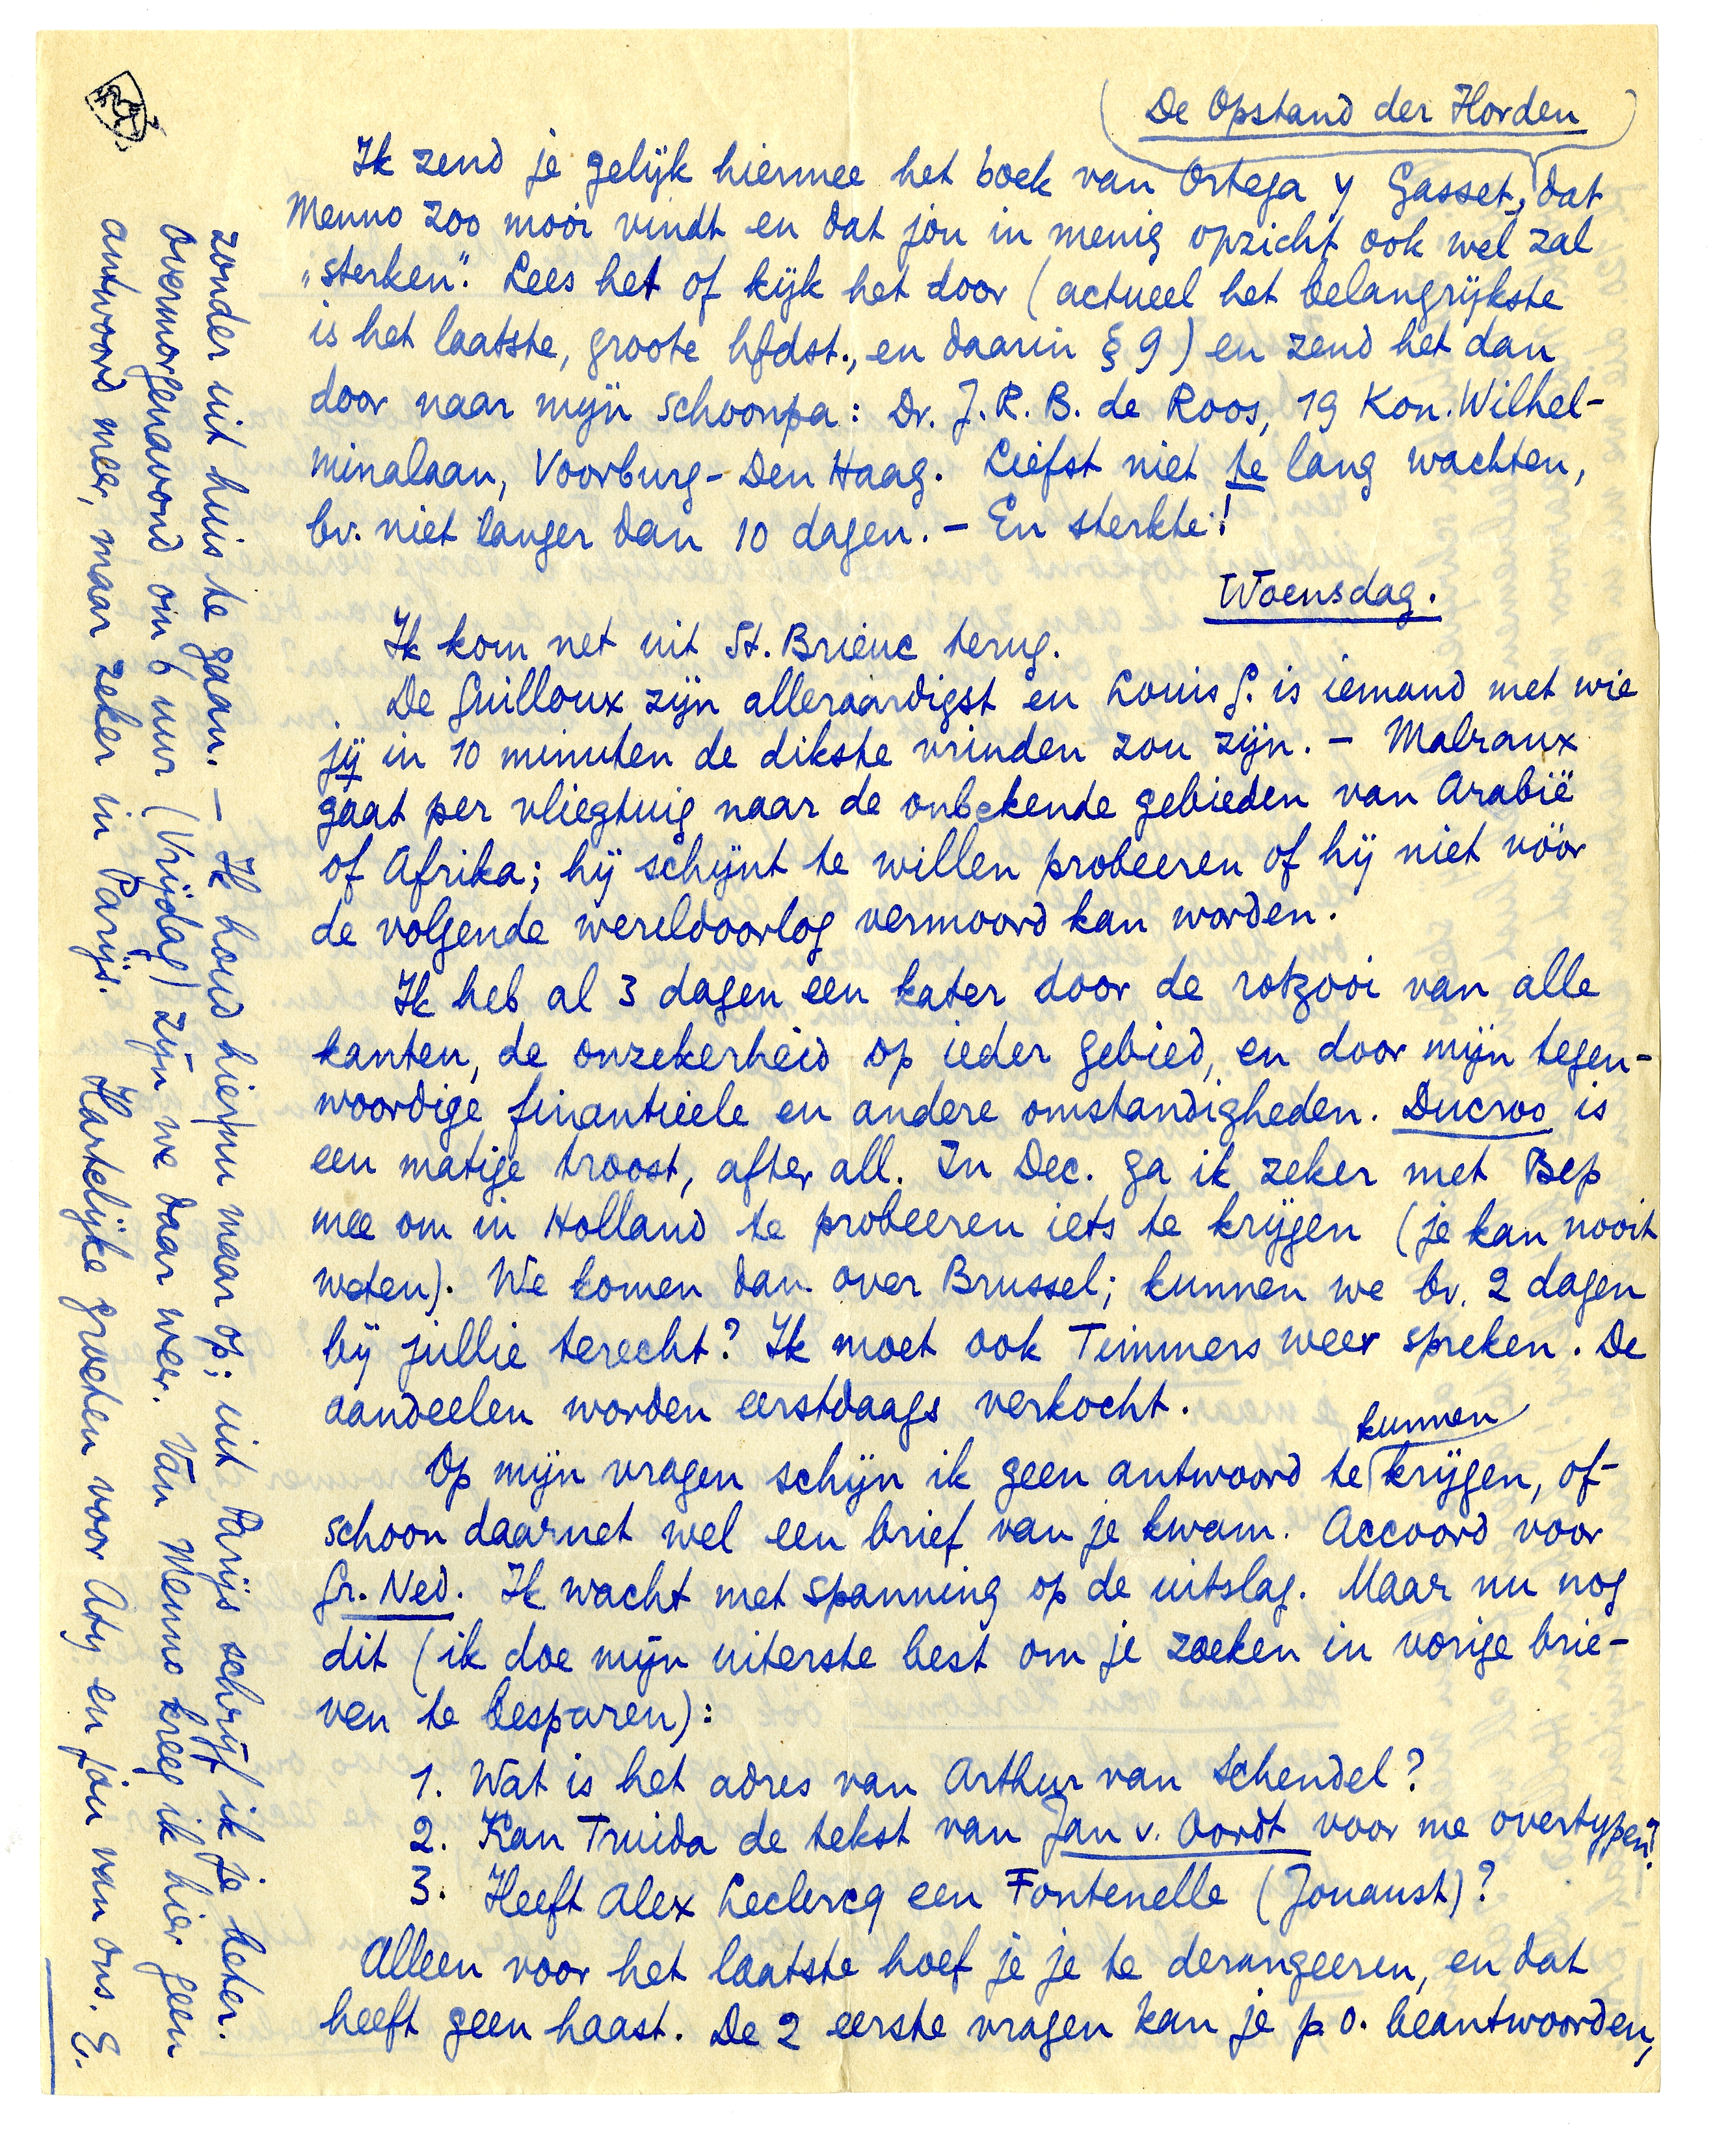 (De Opstand der Horden)
Ik zend je gelijk hiermee het boek van Ortega y Gasset, dat
Menno zoo mooi vindt en dat jou in menig opzicht ook wel zal
„sterken". Lees het of kijk het door (actueel het belangrijkste
is het laatste, groote hfdst., en daarin § 9) en zend het dan
door naar mijn schoonpa: Dr. J. R. B. de Roos, 19 Kon. Wilhel-
minalaan, Voorburg - Den Haag. Liefst niet te lang wachten,
bv. niet langer dan 10 dagen. – En sterkte!
Woensdag.
Ik kom net uit St. Brieuc terug.
De Guilloux zijn alleraardigst en Louis G. is iemand met wie
jij in 10 minuten de dikste vrinden zou zijn. – Malraux
gaat per vliegtuig naar de onbekende gebieden van Arabië
of Afrika; hij schijnt te willen probeeren of hij niet vóór
de volgende wereldoorlog vermoord kan worden.
Ik heb al 3 dagen een kater door de rotzooi van alle
kanten, de onzekerheid op ieder gebied, en door mijn tegen-
woordige finantieele en andere omstandigheden. Ducroo is
een matige troost, after all. In Dec. ga ik zeker met Bep
mee om in Holland te probeeren iets te krijgen (je kan nooit
weten). We komen dan over Brussel; kunnen we bv. 2 dagen
bij jullie terecht? Ik moet ook Timmers weer spreken. De
aandeelen worden eerstdaags verkocht.
Op mijn vragen schijn ik geen antwoord te kunnen krijgen, of-
schoon daarnet wel een brief van je kwam. Accoord voor
Gr. Ned. Ik wacht met spanning op de uitslag. Maar nu nog
dit (ik doe mijn uiterste best om je zoeken in vorige brie-
ven te besparen):
1. Wat is het adres van Arthur van Schendel?
2. Kan Truida de tekst van Jan v. Oordt voor me overtypen?
3. Heeft Alex Leclercq een Fontenelle (Jouaust)?
Alleen voor het laatste hoef je je te derangeeren, en dat
heeft geen haast. De 2 eerste vragen kan je p. o. beantwoorden,
zonder uit huis te gaan. – Ik houd hier nu maar op; uit Parijs schrijf ik je beter.
Overmorgenavond om 6 uur (Vrijdag) zijn we daar weer. Van Menno kreeg ik hier geen
antwoord meer, maar zeker in Parijs. Hartelijke groeten voor Aty en jou van ons. E.